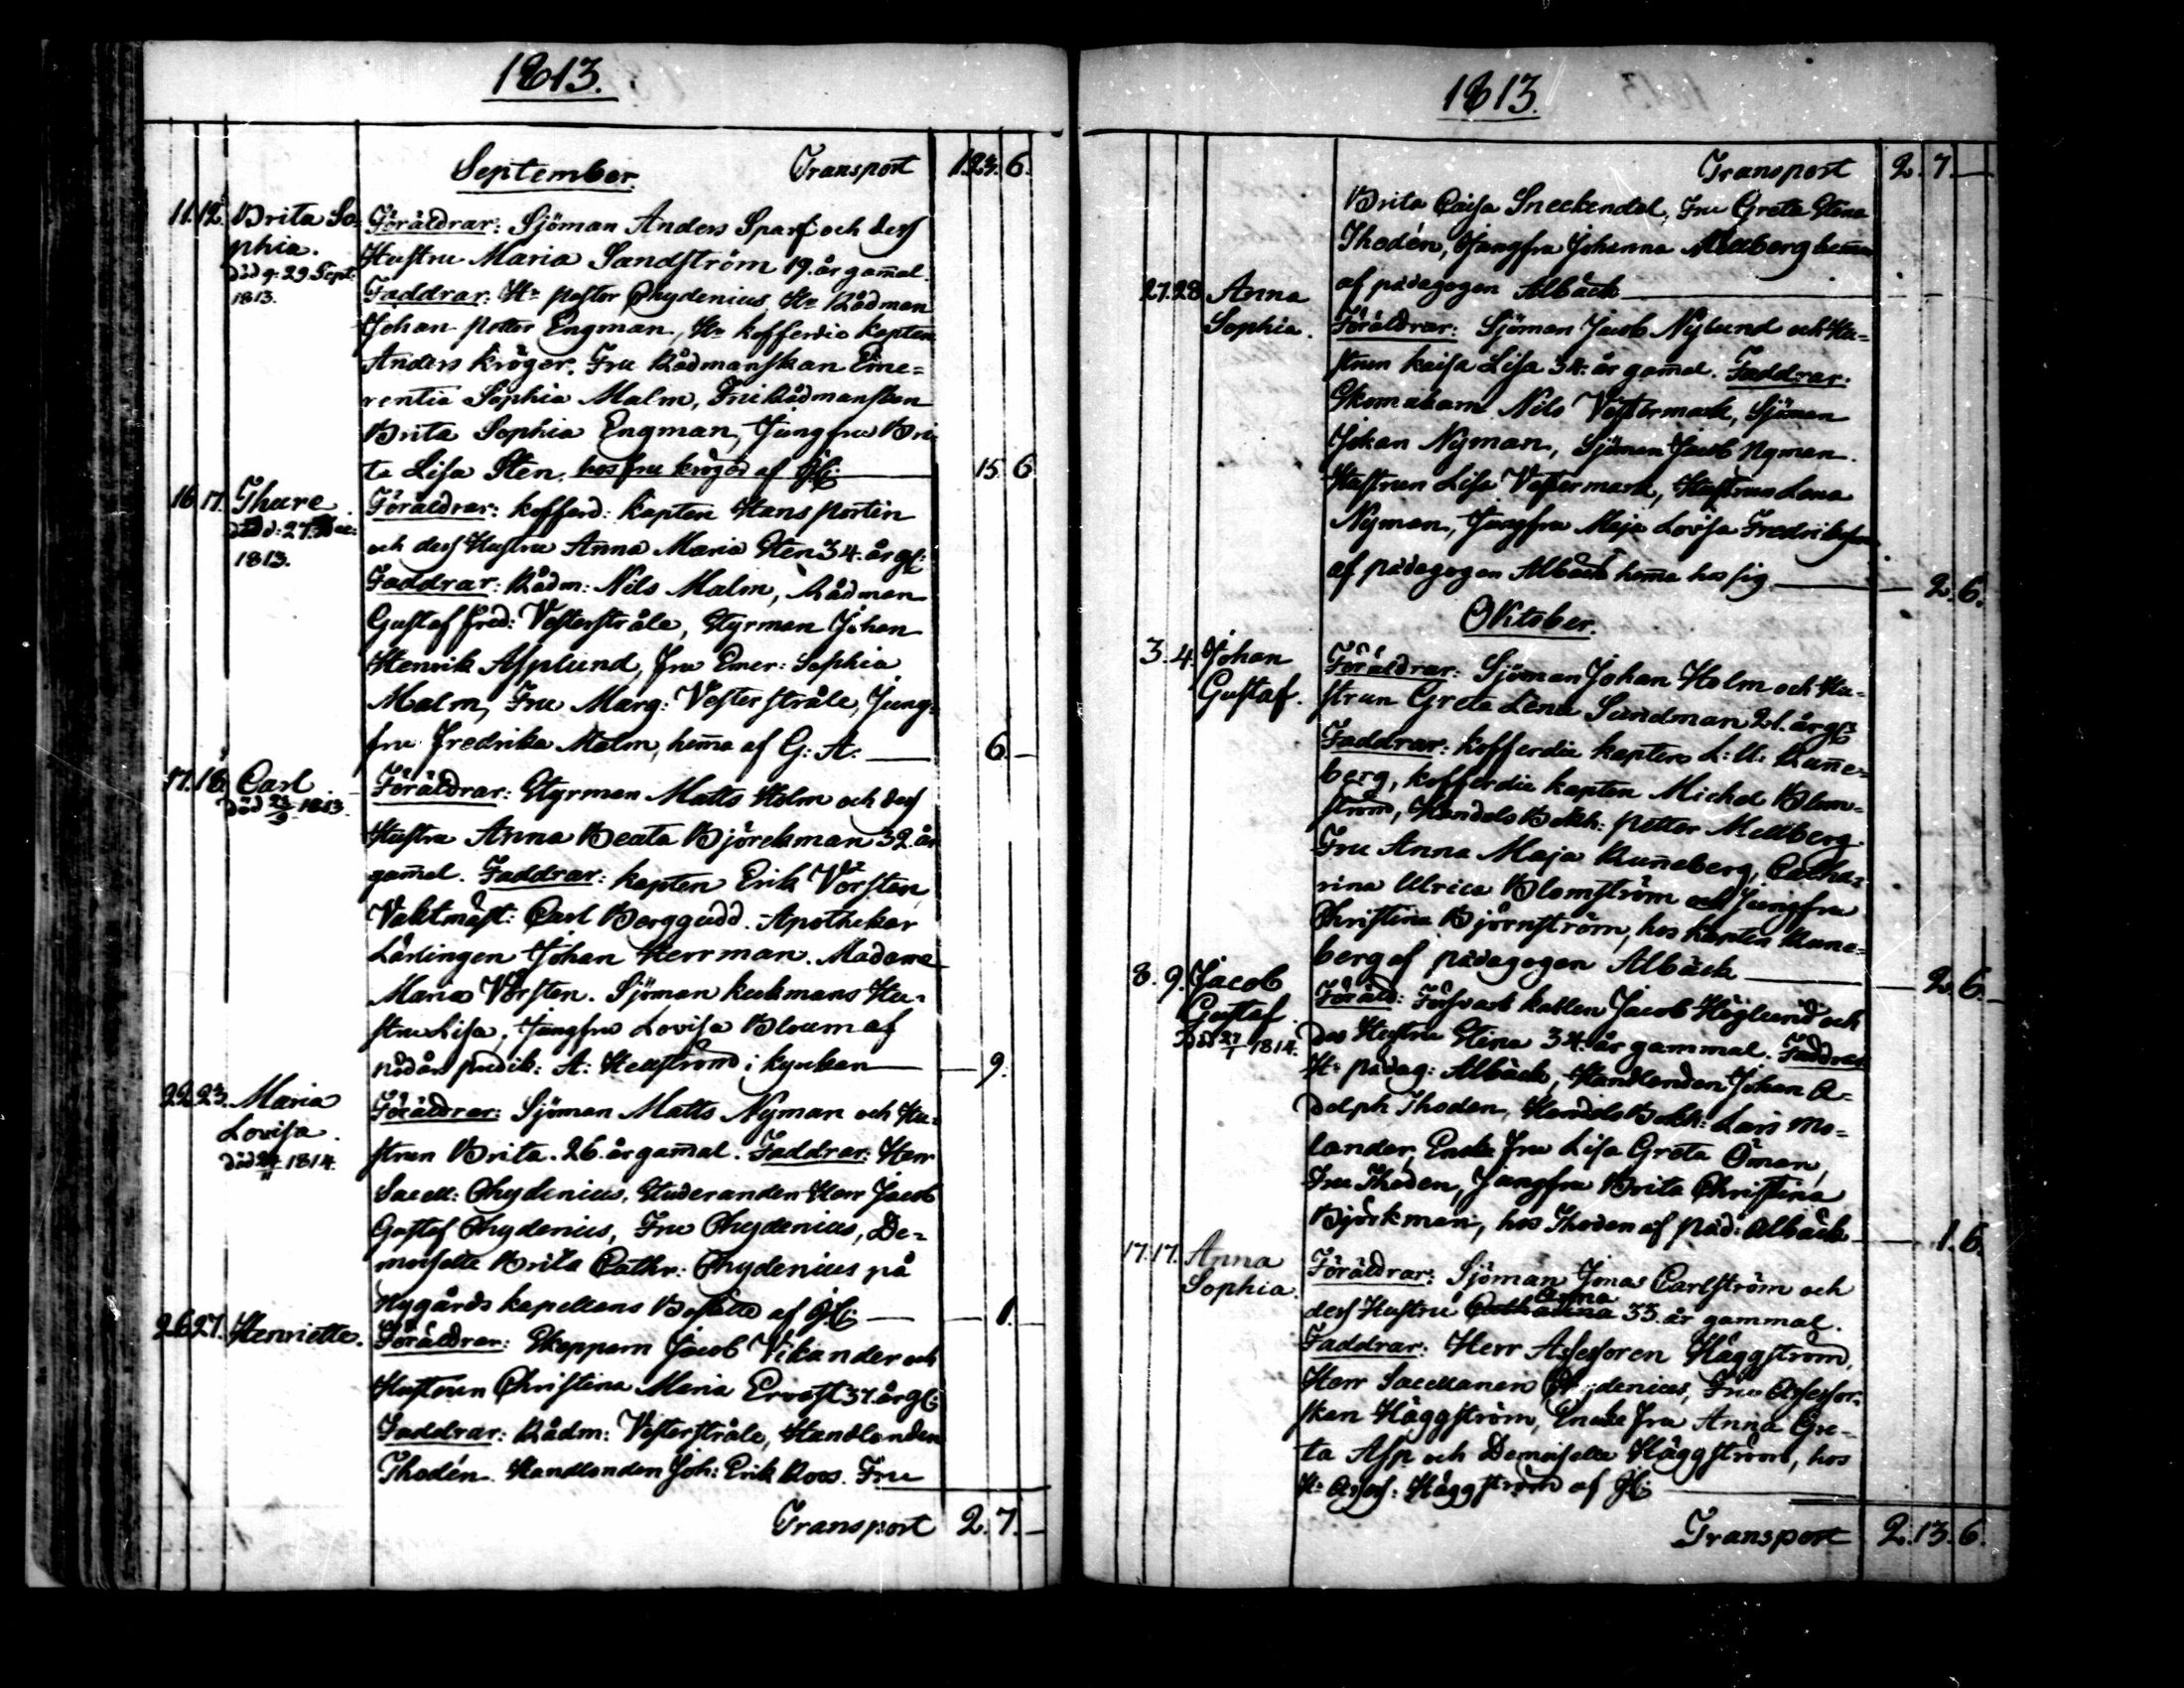 1813.
September. Transport 1.23. 6.
11. 12. Brita So-
phia.
död d. 29 Sept:
1813.
Föräldrar: Sjöman Anders Sparf och dess
Hustru Maria Sandström 19. år gam̄al.
Faddrar: Hr Pastor Chydenius Hr Rådman
Johan Petter Engman, Hr kofferdie kapten
Anders kröger. Fru Rådmanskan Eme-
rentia Sophia Malm, Fru Rådmanskan
Brita Sophia Engman, Jungfru Bri-
ta Lisa Sten, hos fru kröger af 15. 6
16. 17. Thure.
död d: 27. Dec:
1813.
Föräldrar: kofferd: kapten Hans Portin
och dess Hustru Anna Maria Sten 34. år gl:
Faddrar: Rådm: Nils Malm, Rådman
Gustaf Fred: Vesterstråle, Styrman Johan
Henrik Asplund, fru Emer: Sophia
Malm, Fru Marg: Vesterstråle, Jung-
fru Fredrika Malm, hem̄a af G: A: 6. —
17. 18. Carl.
död 23/9 1813.
Föräldrar: Styrman Matts Holm och dess
Hustru Anna Beata Björckman 32. år
gam̄al. Faddrar: kapten Erik Vörsten,
Vaktmäst: Carl Berggudd. Apothekar
Lärlingen Johan Herrman. Madame
Maria Vörsten. Sjöman keckmans Hu-
stru Lisa, Jungfru Lovisa Bloum af
nådår predik: A: Hellström i kyrkan — 9.
22. 23. Maria
Lovisa.
död 1814.
Föräldrar: Sjöman Matts Nyman och Hu-
strun Brita. 26. år gam̄al. Faddrar: Herr
Sacell: Chydenius, Studeranden Herr Jacob
Gustaf Chydenius, Fru Chydenius, De-
moiselle Brita Cathr: Chydenius på
Nygårds kapellans Boställe af — 1. —
26. 27. Henriette.
Föräldrar: Skepparn Jacob Vikander och
Hustrun Christina Maria Ervast 37. år gl:
Faddrar: Rådm: Vesterstråle, Handlanden
Thodén. Handlanden Joh: Erik Roos. Fru
Transport 2. 7. —
1813.
Transport 2. 7. —
Brita Caisa Sneckendal, Fru Greta Stina
Thodén, Jungfru Johanna Mellberg hem̄a
af pædagogen Albäck — — —
27. 28. Anna
Sophia.
Föräldrar: Sjöman Jacob Nylund och Hu-
strun kaisa Lisa 34. år gam̄al. Faddrar:
Skomakarn Nils Vestermark, Sjöman
Johan Nyman, Sjöman Jacob Nyman.
Hustrun Lisa Vestermark, Hustrun Lena
Nyman, Jungfru Maja Lovisa Fredriksson
af pædagogen Albäck hem̄a hos sig — 2. 6.
Oktober.
3. 4. Johan
Gustaf.
Föräldrar: Sjöman Johan Holm och Hu-
strun Greta Lena Sundman 21. år gl:
Faddrar: kofferdie kapten L: U: Run̄e-
berg, kofferdie kapten Michel Blom-
ström, Handels Bokh: Petter Mellberg.
Fru Anna Maja Run̄eberg, Catha-
rina Ulrica Blomström och Jungfru
Christina Björnström, hos kapten Rune-
berg af pædagogen Albäck — 2. 6. —
8. 9. Jacob
Gustaf.
död 27/1 1814.
Föräld: Försvars karlen Jacob Höglund och
des Hustru Stina 34. år gammal. Faddrar
Hr pædag: Albäck, Handlanden Johan A-
dolph Thoden, Handels Bokh: Lars Mo-
lander, Enke fru Lisa Greta Öman,
Fru Thoden, Jungfru Brita Christina
Björkman, hos Thoden af Päd: Albäck — 1. 6.
17. 17. Anna
Sophia.
Föräldrar: Sjöman Jonas Carlström och
dess Hustru Catharina Anna 33. år gammal.
Faddrar: Herr Assessoren Häggström,
Herr Sacellanen Chydenius, Fru Assessor-
skan Häggström, Enke fru Anna Gre-
ta Asp och Demoiselle Häggström, hos
Hr Assess: Häggström af
Transport 2. 13. 6.